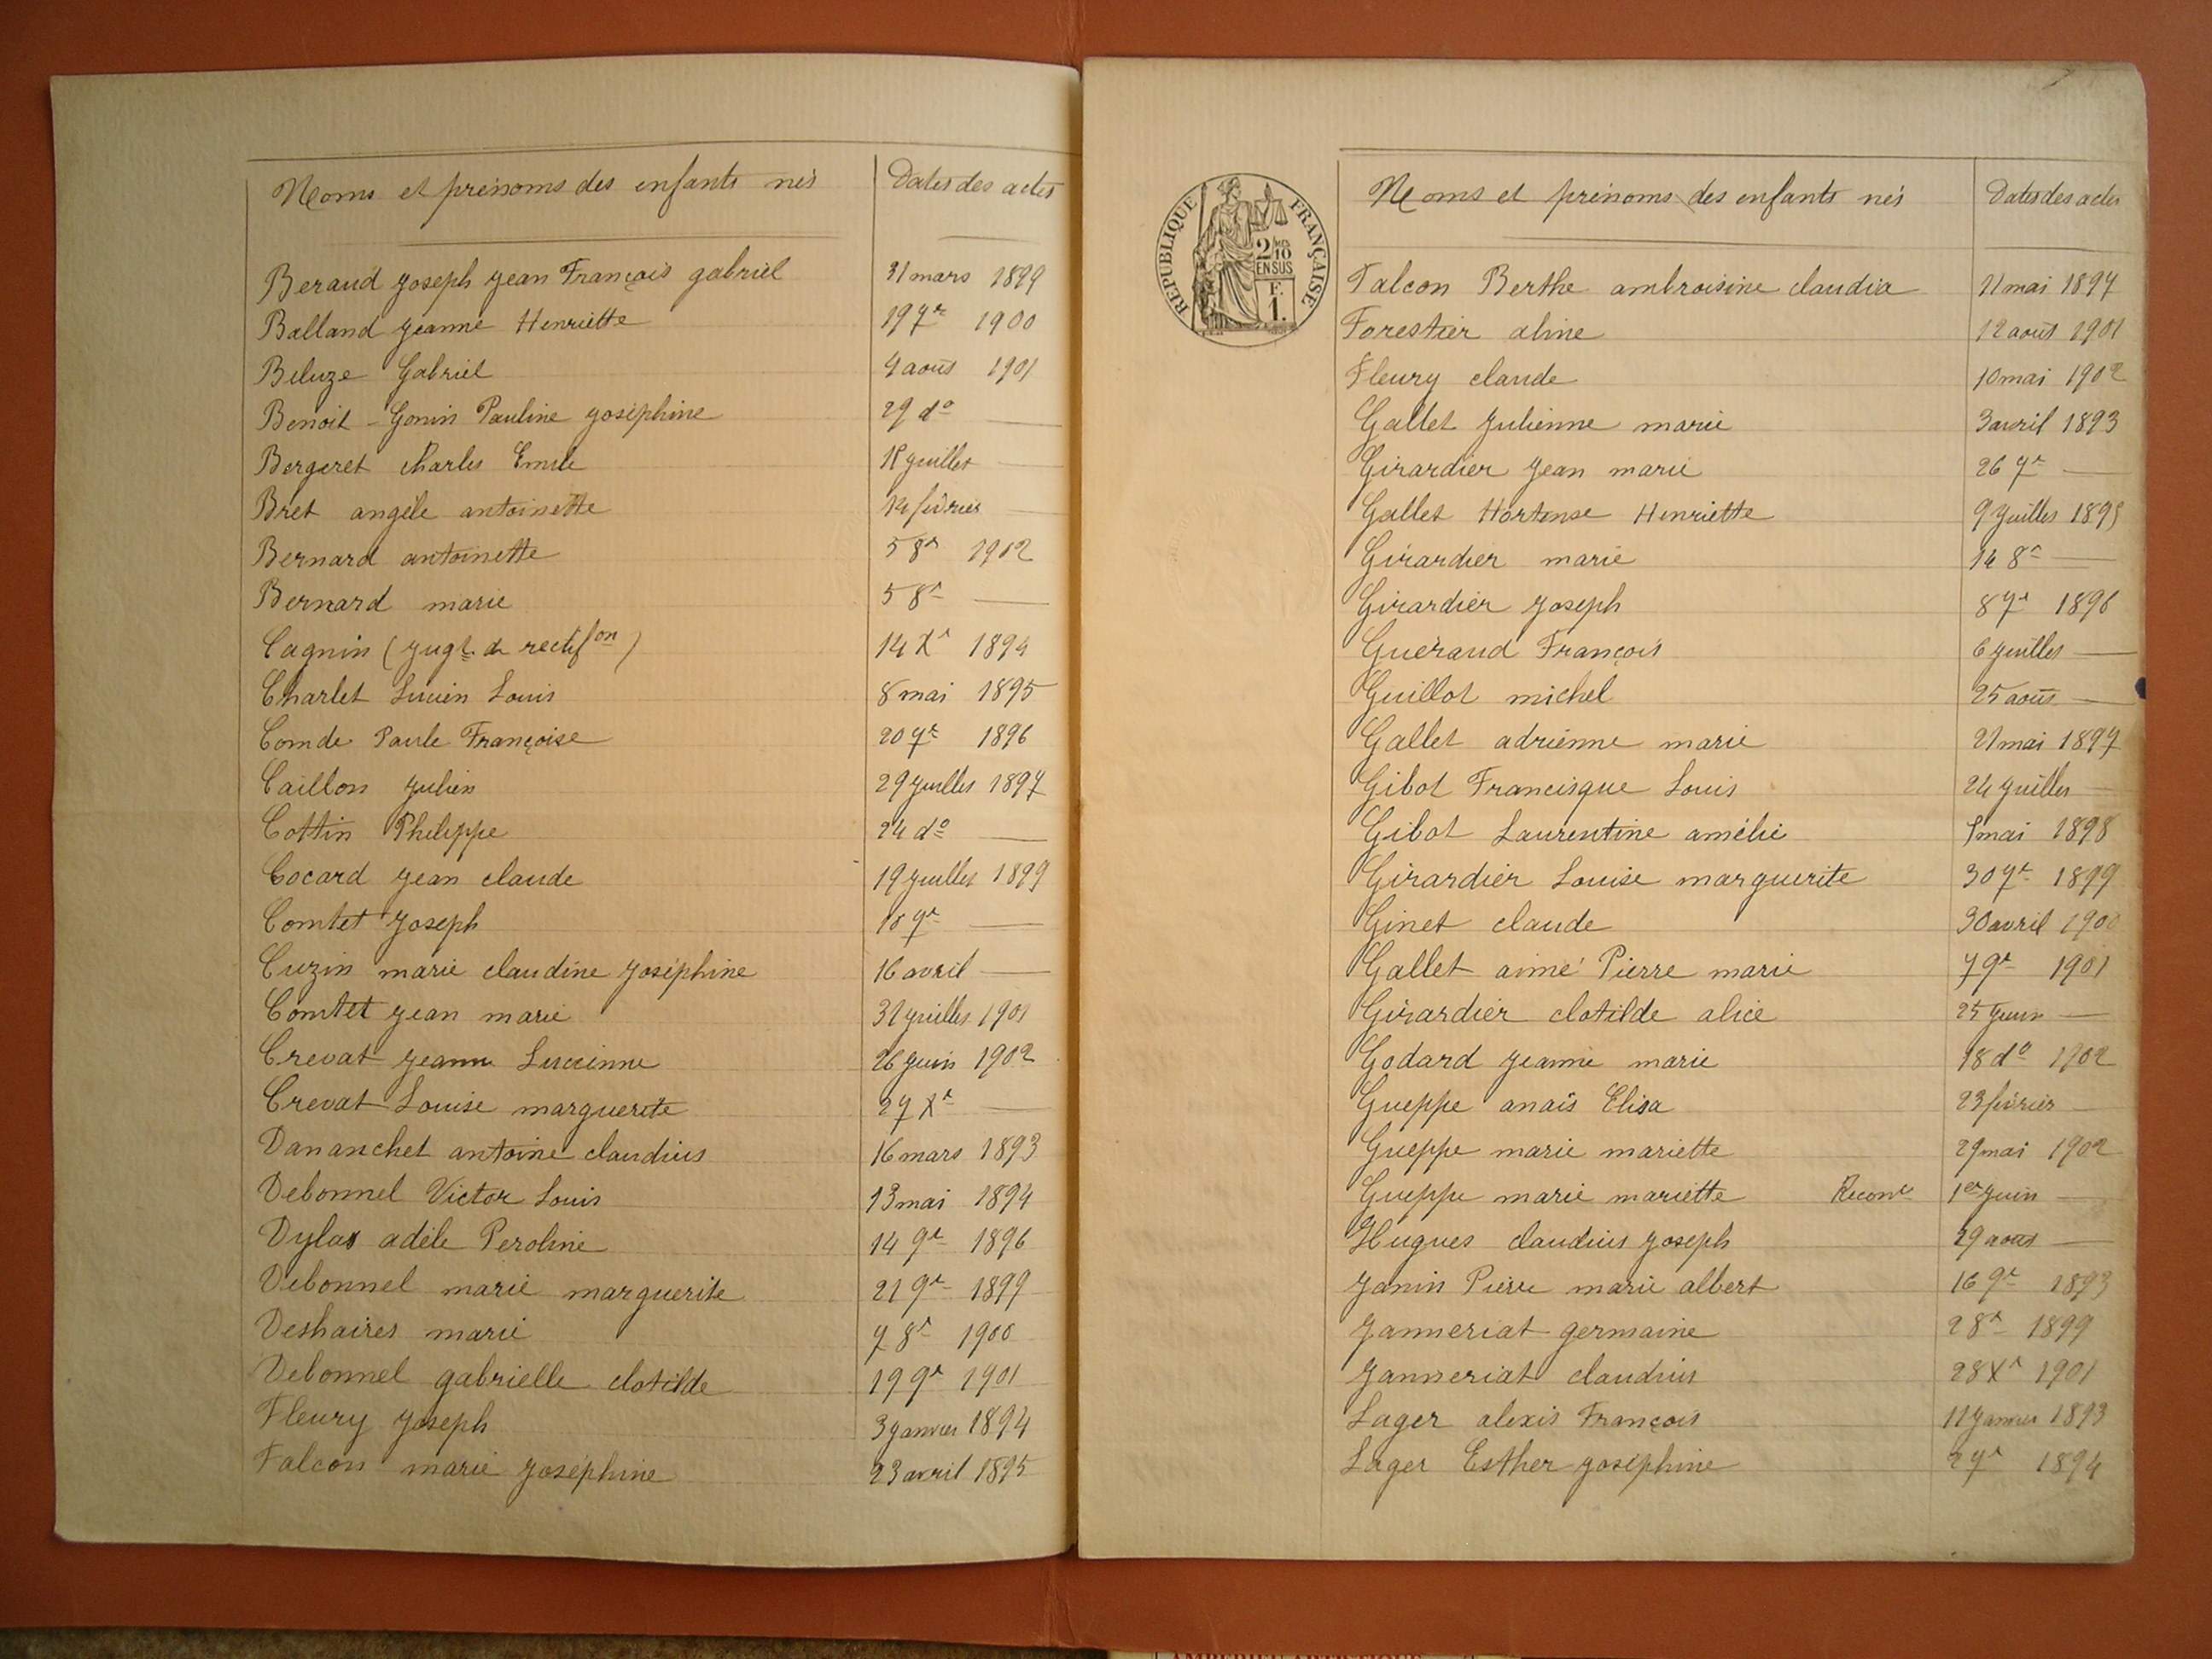 Noms et prénoms des enfants nés Dates des actes
Beraud Joseph Jean François gabriel 31 mars 1899
Balland Jeanne Henriette 19 7re 1900
Beluze Gabriel 4 août 1901
Benoit-Gonin Pauline Joséphine 29 do
Bergeret charles Emile 18 Juillet
Bret angèle antoinette 14 février
Bernard antoinette 5 8re 1902
Bernard marie 5 8re
Cagnin (Jugt de rectifon) 14 Xre 1894
Charlet Lucien Louis 8 mai 1895
Comde Paule Françoise 20 7re 1896
Caillon Julien 29 Juillet 1897
Cottin Philippe 24 do
Cocard Jean claude 19 Juillet 1899
Comtet Joseph 18 9re
Cuzin marie claudine Joséphine 16 avril
Comtet Jean marie 31 Juillet 1901
Crevat Jeanne Lucienne 26 Juin 1902
Crevat Louise marguerite 27 Xre
Dananchet antoine claudius 16 mars 1893
Debonnel Victor Louis 13 mai 1894
Dylas adèle Peroline 14 9re 1896
Debonnel marie marguerite 21 9re 1899
Deshaires marie 7 8re 1900
Debonnel gabrielle clotilde 19 9re 1901
Fleury Joseph 3 Janvier 1894
Falcon marie Joséphine 23 avril 1895
REPUBLIQUE FRANÇAISE
2/10
EN SUS
F.
1.
Noms et prénoms des enfants nés Dates des actes
Falcon Berthe ambroisine claudia 11 mai 1897
Forestier aline 12 août 1901
Fleury claude 10 mai 1902
Gallet Julienne marie 3 avril 1893
Girardier Jean marie 26 7re
Gallet Hortense Henriette 9 Juillet 1895
Girardier marie 14 8re
Girardier Joseph 8 7re 1896
Gueraud François 6 Juillet
Guillot michel 25 août
Gallet adrienne marie 21 mai 1897
Gibot Francisque Louis 24 Juillet
Gibot Laurentine amélie mai 1898
Girardier Louise marguerite 30 7re 1899
Ginet claude 30 avril 1900
Gallet aimé Pierre marie 7 9re 1901
Girardier clotilde alice 25 Juin
Godard Jeanne marie 18 do 1902
Gueppe anaïs Elisa 23 février
Gueppe marie mariette 29 mai 1902
Gueppe marie mariette Reconce 1er Juin
Hugues claudius Joseph 29 août
Janin Pierre marie albert 16 9re 1893
Janneriat germaine 2 8re 1899
Janneriat claudius 28 Xre 1901
Lager alexis François 11 Janvier 1893
Lager Esther Joséphine 2 7re 1894